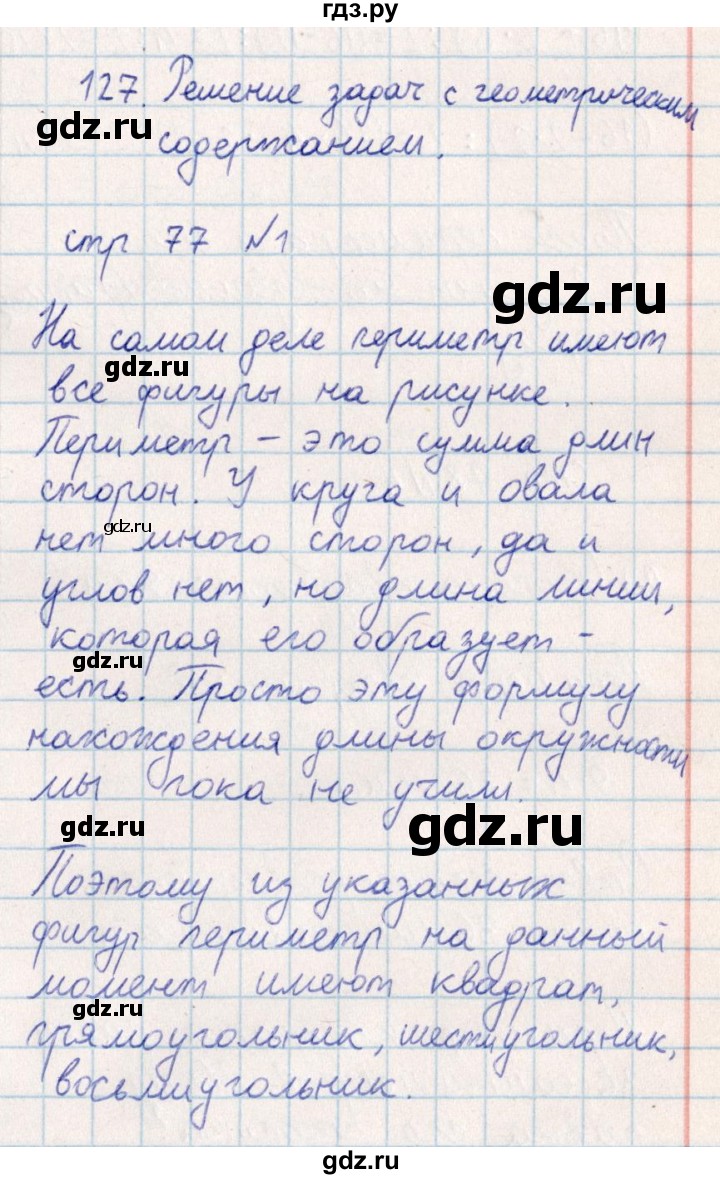 гдз.ру
127. Решение задач с геометрическим
gdz.ru
содержанием.
стр 77 №1
gdz.ru
На самом деле периметр имеют
gdz.ru
все фигуры на рисунке.
Периметр – это сумма длин
сторон. У круга и овала
gdz.ru
нет много сторон, да и
углов нет, но длина линии,
которая его образует –
gdz.ru
есть. Просто эту формулу
нахождения длины окружности
мы пока не учили.
gdz.ru
gdz.ru
Поэтому из указанных
фигур периметр на данный
момент имеют квадрат,
gdz.ru
прямоугольник, шестиугольник,
восьмиугольник.
gdz.ru